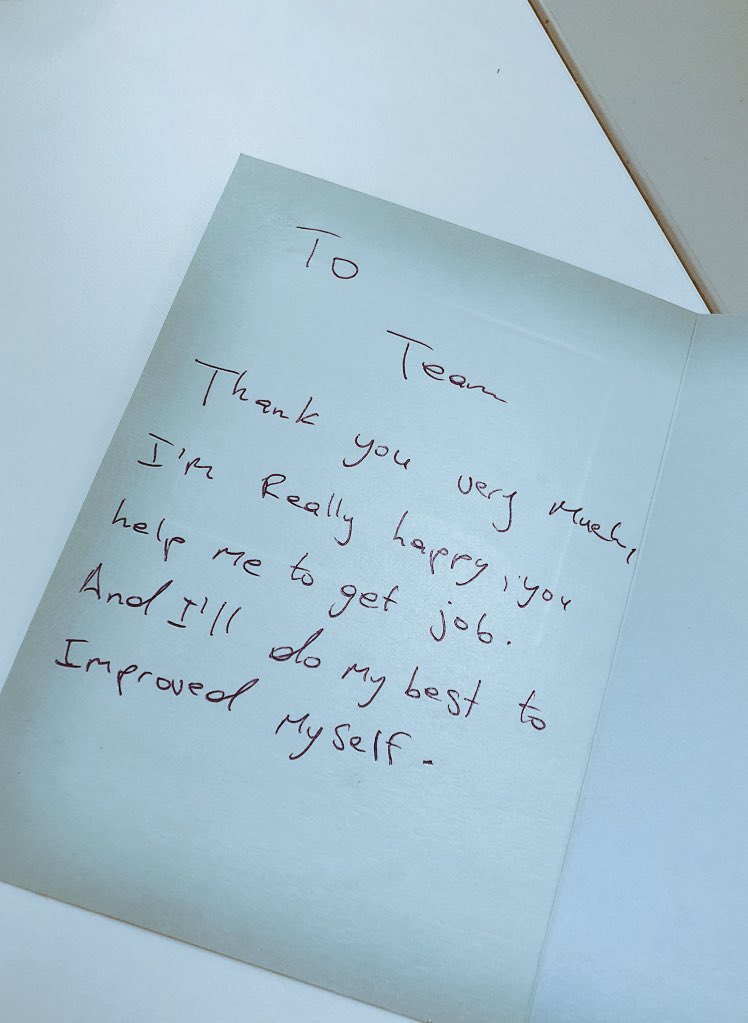 To
Team
Thank you very Much,
I'm Really happy, you
help me to get job.
And I'll do my best to
Improved Myself.